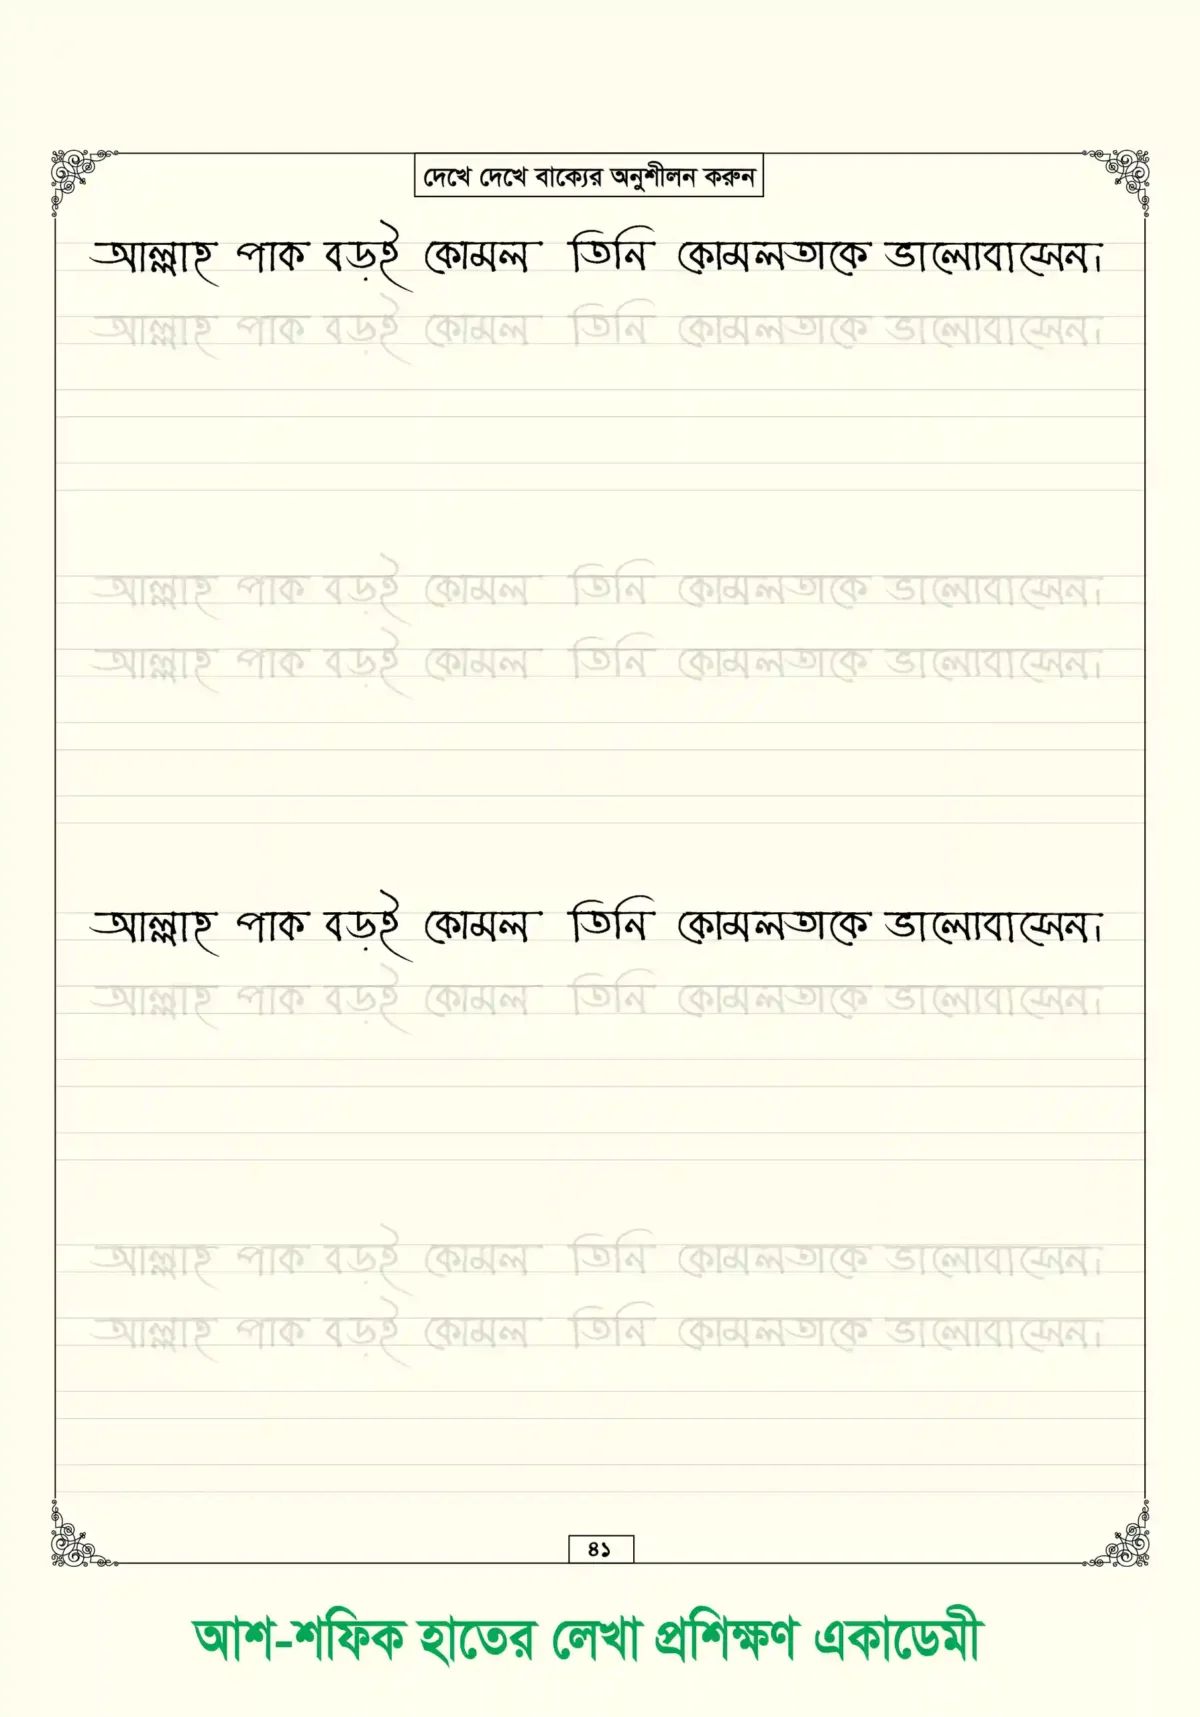 দেখে দেখে বাক্যের অনুশীলন করুন
আল্লাহ পাক বড়ই কোমল তিনি কোমলতাকে ভালোবাসেন।
আল্লাহ পাক বড়ই কোমল তিনি কোমলতাকে ভালোবাসেন।
আল্লাহ পাক বড়ই কোমল তিনি কোমলতাকে ভালোবাসেন।
আল্লাহ পাক বড়ই কোমল তিনি কোমলতাকে ভালোবাসেন।
আল্লাহ পাক বড়ই কোমল তিনি কোমলতাকে ভালোবাসেন।
আল্লাহ পাক বড়ই কোমল তিনি কোমলতাকে ভালোবাসেন।
আল্লাহ পাক বড়ই কোমল তিনি কোমলতাকে ভালোবাসেন।
আল্লাহ পাক বড়ই কোমল তিনি কোমলতাকে ভালোবাসেন।
৪১
আশ-শফিক হাতের লেখা প্রশিক্ষণ একাডেমী